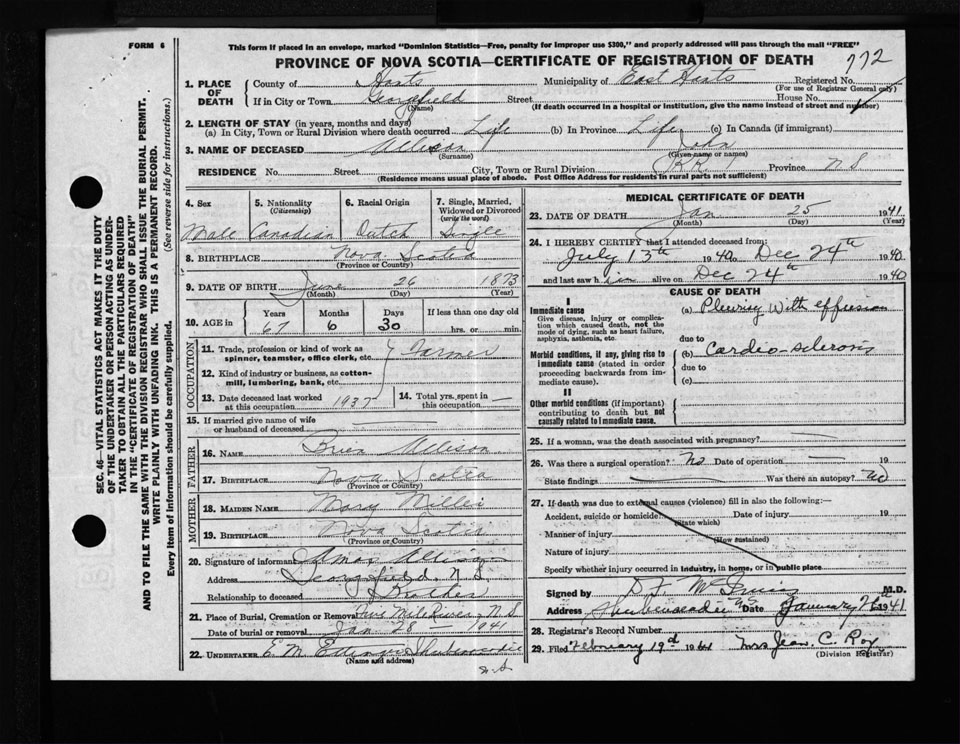 FORM 6
This form if placed in an envelope, marked "Dominion Statistics—Free, penalty for improper use $300," and properly addressed will pass through the mail "FREE"
PROVINCE OF NOVA SCOTIA—CERTIFICATE OF REGISTRATION OF DEATH
772
1. PLACE OF DEATH
County of Hants Municipality of East Hants Registered No.
(For use of Registrar General only)
If in City or Town Georgefield Street House No.
(Name) (If death occurred in a hospital or institution, give the name instead of street and number)
2. LENGTH OF STAY (in years, months and days)
(a) In City, Town or Rural Division where death occurred Life (b) In Province Life (c) In Canada (if immigrant)
3. NAME OF DECEASED Allison John
(Surname) (Given name or names)
RESIDENCE No. Street City, Town or Rural Division R.R. 1 Province N S
(Residence means usual place of abode. Post Office Address for residents in rural parts not sufficient)
4. Sex
Male
5. Nationality (Citizenship)
Canadian
6. Racial Origin
Dutch
7. Single, Married, Widowed or Divorced (write the word)
Single
8. BIRTHPLACE Nova Scotia
(Province or Country)
9. DATE OF BIRTH June 26 1873
(Month) (Day) (Year)
10. AGE in Years Months Days If less than one day old
67 6 30 hrs. or min.
OCCUPATION
11. Trade, profession or kind of work as spinner, teamster, office clerk, etc. Farmer
12. Kind of industry or business, as cotton-mill, lumbering, bank, etc.
13. Date deceased last worked at this occupation 1937
14. Total yrs. spent in this occupation —
15. If married give name of wife or husband of deceased
FATHER
16. NAME Allison
17. BIRTHPLACE Nova Scotia
(Province or Country)
MOTHER
18. MAIDEN NAME Mary
19. BIRTHPLACE Nova Scotia
(Province or Country)
20. Signature of informant Amos Allison
Address Georgefield, N.S.
Relationship to deceased Brother
21. Place of Burial, Cremation or Removal Five Mile River, N.S
Date of burial or removal Jan 28 1941
22. UNDERTAKER E. M. Ettinger Shubenacadie
(Name and address)
N.S
MEDICAL CERTIFICATE OF DEATH
23. DATE OF DEATH Jan 25 1941
(Month) (Day) (Year)
24. I HEREBY CERTIFY that I attended deceased from:
July 13th 1940 to Dec 24th 1940
and last saw him alive on Dec 24th 1940
CAUSE OF DEATH
I
Immediate cause
Give disease, injury or complication which caused death, not the mode of dying, such as heart failure, asphyxia, asthenia, etc.
(a) Pleurisy with effusion
due to
Morbid conditions, if any, giving rise to immediate cause (stated in order proceeding backwards from immediate cause).
(b) Cardio-sclerosis
due to
(c)
II
Other morbid conditions (if important) contributing to death but not causally related to immediate cause.
25. If a woman, was the death associated with pregnancy?
26. Was there a surgical operation? No Date of operation 19
State findings Was there an autopsy? No
27. If death was due to external causes (violence) fill in also the following:—
Accident, suicide or homicide Date of injury 19
(State which)
Manner of injury
(How sustained)
Nature of injury
Specify whether injury occurred in industry, in home, or in public place
Signed by M.D.
Address Shubenacadie NS Date January 1941
28. Registrar's Record Number
29. Filed February 19th 1941 Mrs Jean C. Roy
(Division Registrar)
SEC. 46—VITAL STATISTICS ACT MAKES IT THE DUTY
OF THE UNDERTAKER OR PERSON ACTING AS UNDER-
TAKER TO OBTAIN ALL THE PARTICULARS REQUIRED
IN THE "CERTIFICATE OF REGISTRATION OF DEATH"
AND TO FILE THE SAME WITH THE DIVISION REGISTRAR WHO SHALL ISSUE THE BURIAL PERMIT.
WRITE PLAINLY WITH UNFADING INK. THIS IS A PERMANENT RECORD.
Every item of Information should be carefully supplied. (See reverse side for instructions.)